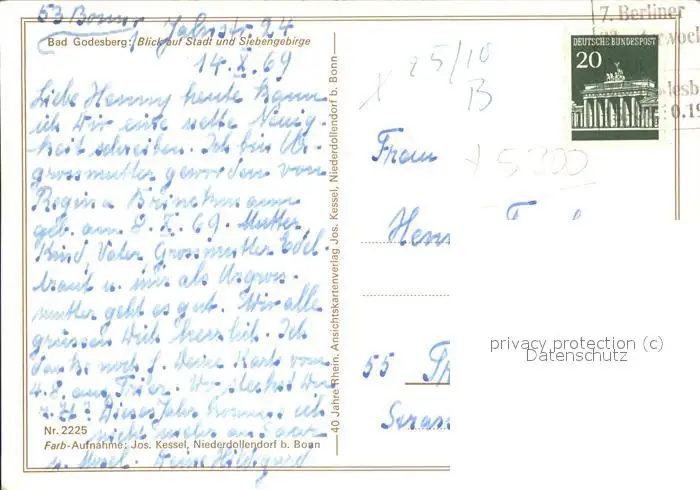 53 Bonn, Jahnstr. 24
Bad Godesberg: Blick auf Stadt und Siebengebirge
14. X. 69
Liebe Henny heute kann
ich Dir eine nette Neuig-
keit schreiben. Ich bin Ur-
grossmutter geworden von
Regina Brinckmann
geb. am 2. X. 69. Mutter
Kind, Vater Grossmutter Edel-
traut u. mir als Urgross-
mutter geht es gut. Wir alle
grüssen Dich herzlich. Ich
danke noch f. Deine Karte vom
4.8. aus Trier. Wo steckst Du
z. Zt? Dieses Jahr komme ich
nicht mehr an Saar
u. Mosel. Deine Hildegard
Nr. 2225
Farb-Aufnahme: Jos. Kessel, Niederdollendorf b. Bonn
40 Jahre Rhein. Ansichtskartenverlag Jos. Kessel, Niederdollendorf b. Bonn
7. Berliner
DEUTSCHE BUNDESPOST
20
25/10
B
x 5300
Frau
55
privacy protection (c)
Datenschutz